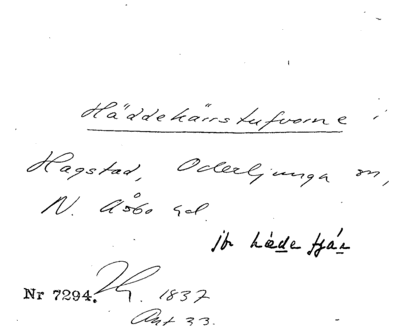 Häddekärrstufvorne i
Hagstad, Oderljunga sn,
N. Åsbo hd.
jfr hæde kjär
Nr 7294. 1837
Akt 33.